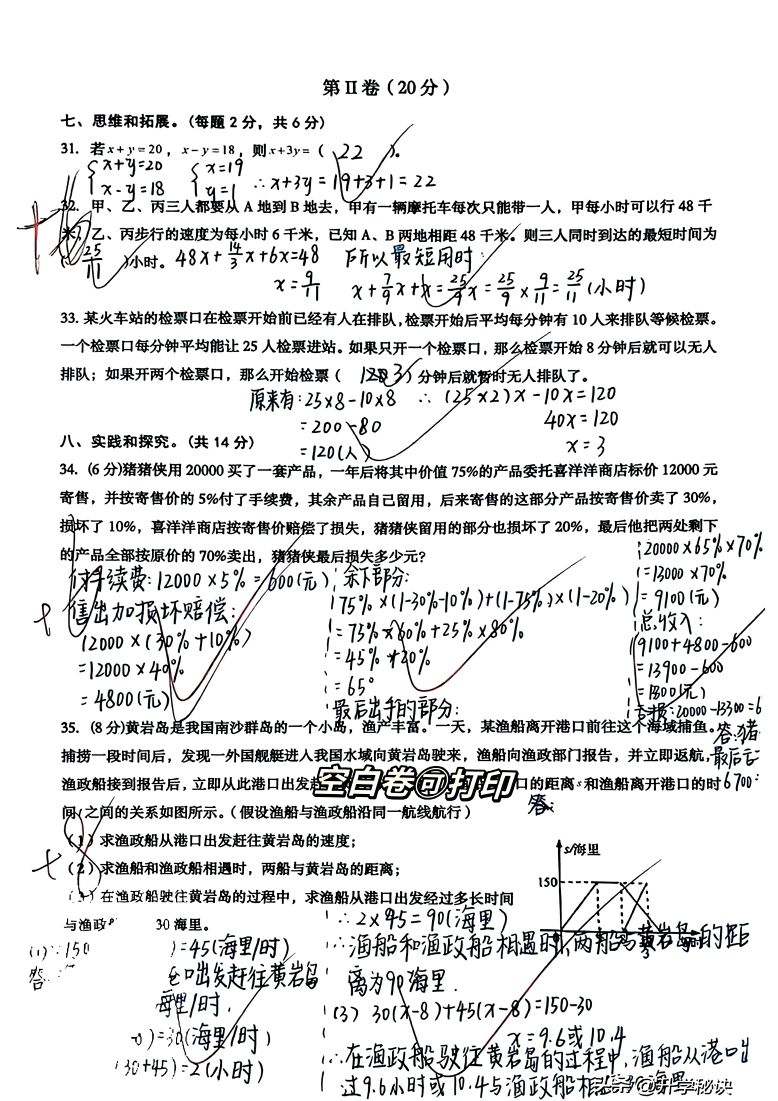 第Ⅱ卷（20分）
七、思维和拓展。（每题2分，共6分）
31. 若x+y=20，x−y=18，则x+3y=（ 22 ）。
x+y=20 x=19
x-y=18 y=1 ∴x+3y=19+3+1=22
32. 甲、乙、丙三人都要从A地到B地去，甲有一辆摩托车每次只能带一人，甲每小时可以行48千
米，乙、丙步行的速度为每小时6千米，已知A、B两地相距48千米。则三人同时到达的最短时间为
（ 25/11 ）小时。 48x+14/3x+6x=48 所以最短用时:
x=9/11 x+7/9x+x=25/9x=25/9×9/11=25/11(小时)
33. 某火车站的检票口在检票开始前已经有人在排队，检票开始后平均每分钟有10人来排队等候检票。
一个检票口每分钟平均能让25人检票进站。如果只开一个检票口，那么检票开始8分钟后就可以无人
排队；如果开两个检票口，那么开始检票（ 3 ）分钟后就暂时无人排队了。
原来有:25×8-10×8 ∴(25×2)x-10x=120
=200-80 40x=120
=120(人) x=3
八、实践和探究。（共14分）
34. (6分)猪猪侠用20000买了一套产品，一年后将其中价值75%的产品委托喜洋洋商店标价12000元
寄售，并按寄售价的5%付了手续费，其余产品自己留用，后来寄售的这部分产品按寄售价卖了30%，
损坏了10%，喜洋洋商店按寄售价赔偿了损失，猪猪侠留用的部分也损坏了20%，最后他把两处剩下
的产品全部按原价的70%卖出，猪猪侠最后损失多少元?
付手续费:12000×5%=600(元)
售出加损坏赔偿:
12000×(30%+10%)
=12000×40%
=4800(元)
余下部分:
75%×(1-30%-10%)+(1-75%)×(1-20%)
=75%×60%+25%×80%
=45%+20%
=65%
最后出手的部分:
20000×65%×70%
=13000×70%
=9100(元)
总收入:
9100+4800-600
=13900-600
=13300(元)
20000-13300=6
答:猪
最后
6700
35. (8分)黄岩岛是我国南沙群岛的一个小岛，渔产丰富。一天，某渔船离开港口前往这个海域捕鱼。
捕捞一段时间后，发现一外国舰艇进入我国水域向黄岩岛驶来，渔船向渔政部门报告，并立即返航，
渔政船接到报告后，立即从此港口出发赶
空白卷可打印
口的距离s和渔船离开港口的时
间t之间的关系如图所示。（假设渔船与渔政船沿同一航线航行）
答:
（1）求渔政船从港口出发赶往黄岩岛的速度；
（2）求渔船和渔政船相遇时，两船与黄岩岛的距离；
（3）在渔政船驶往黄岩岛的过程中，求渔船从港口出发经过多长时间
与渔政 30海里。
s/海里
150
(1)∵150 )=45(海里/时)
答: 出发赶往黄岩岛
海里/时.
)=30(海里/时)
30+45)=2(小时)
∴2×45=90(海里)
∴渔船和渔政船相遇时,两船与黄岩岛的距
离为90海里.
(3) 30(x-8)+45(x-8)=150-30
x=9.6或10.4
∴在渔政船驶往黄岩岛的过程中,渔船从港口出
过9.6小时或10.4与渔政船相
头条@升学秘诀
+6
+6
+8